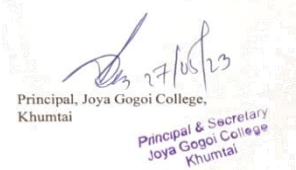 27/05/23
Principal, Joya Gogoi College,
Khumtai
Principal & Secretary
Joya Gogoi College
Khumtai